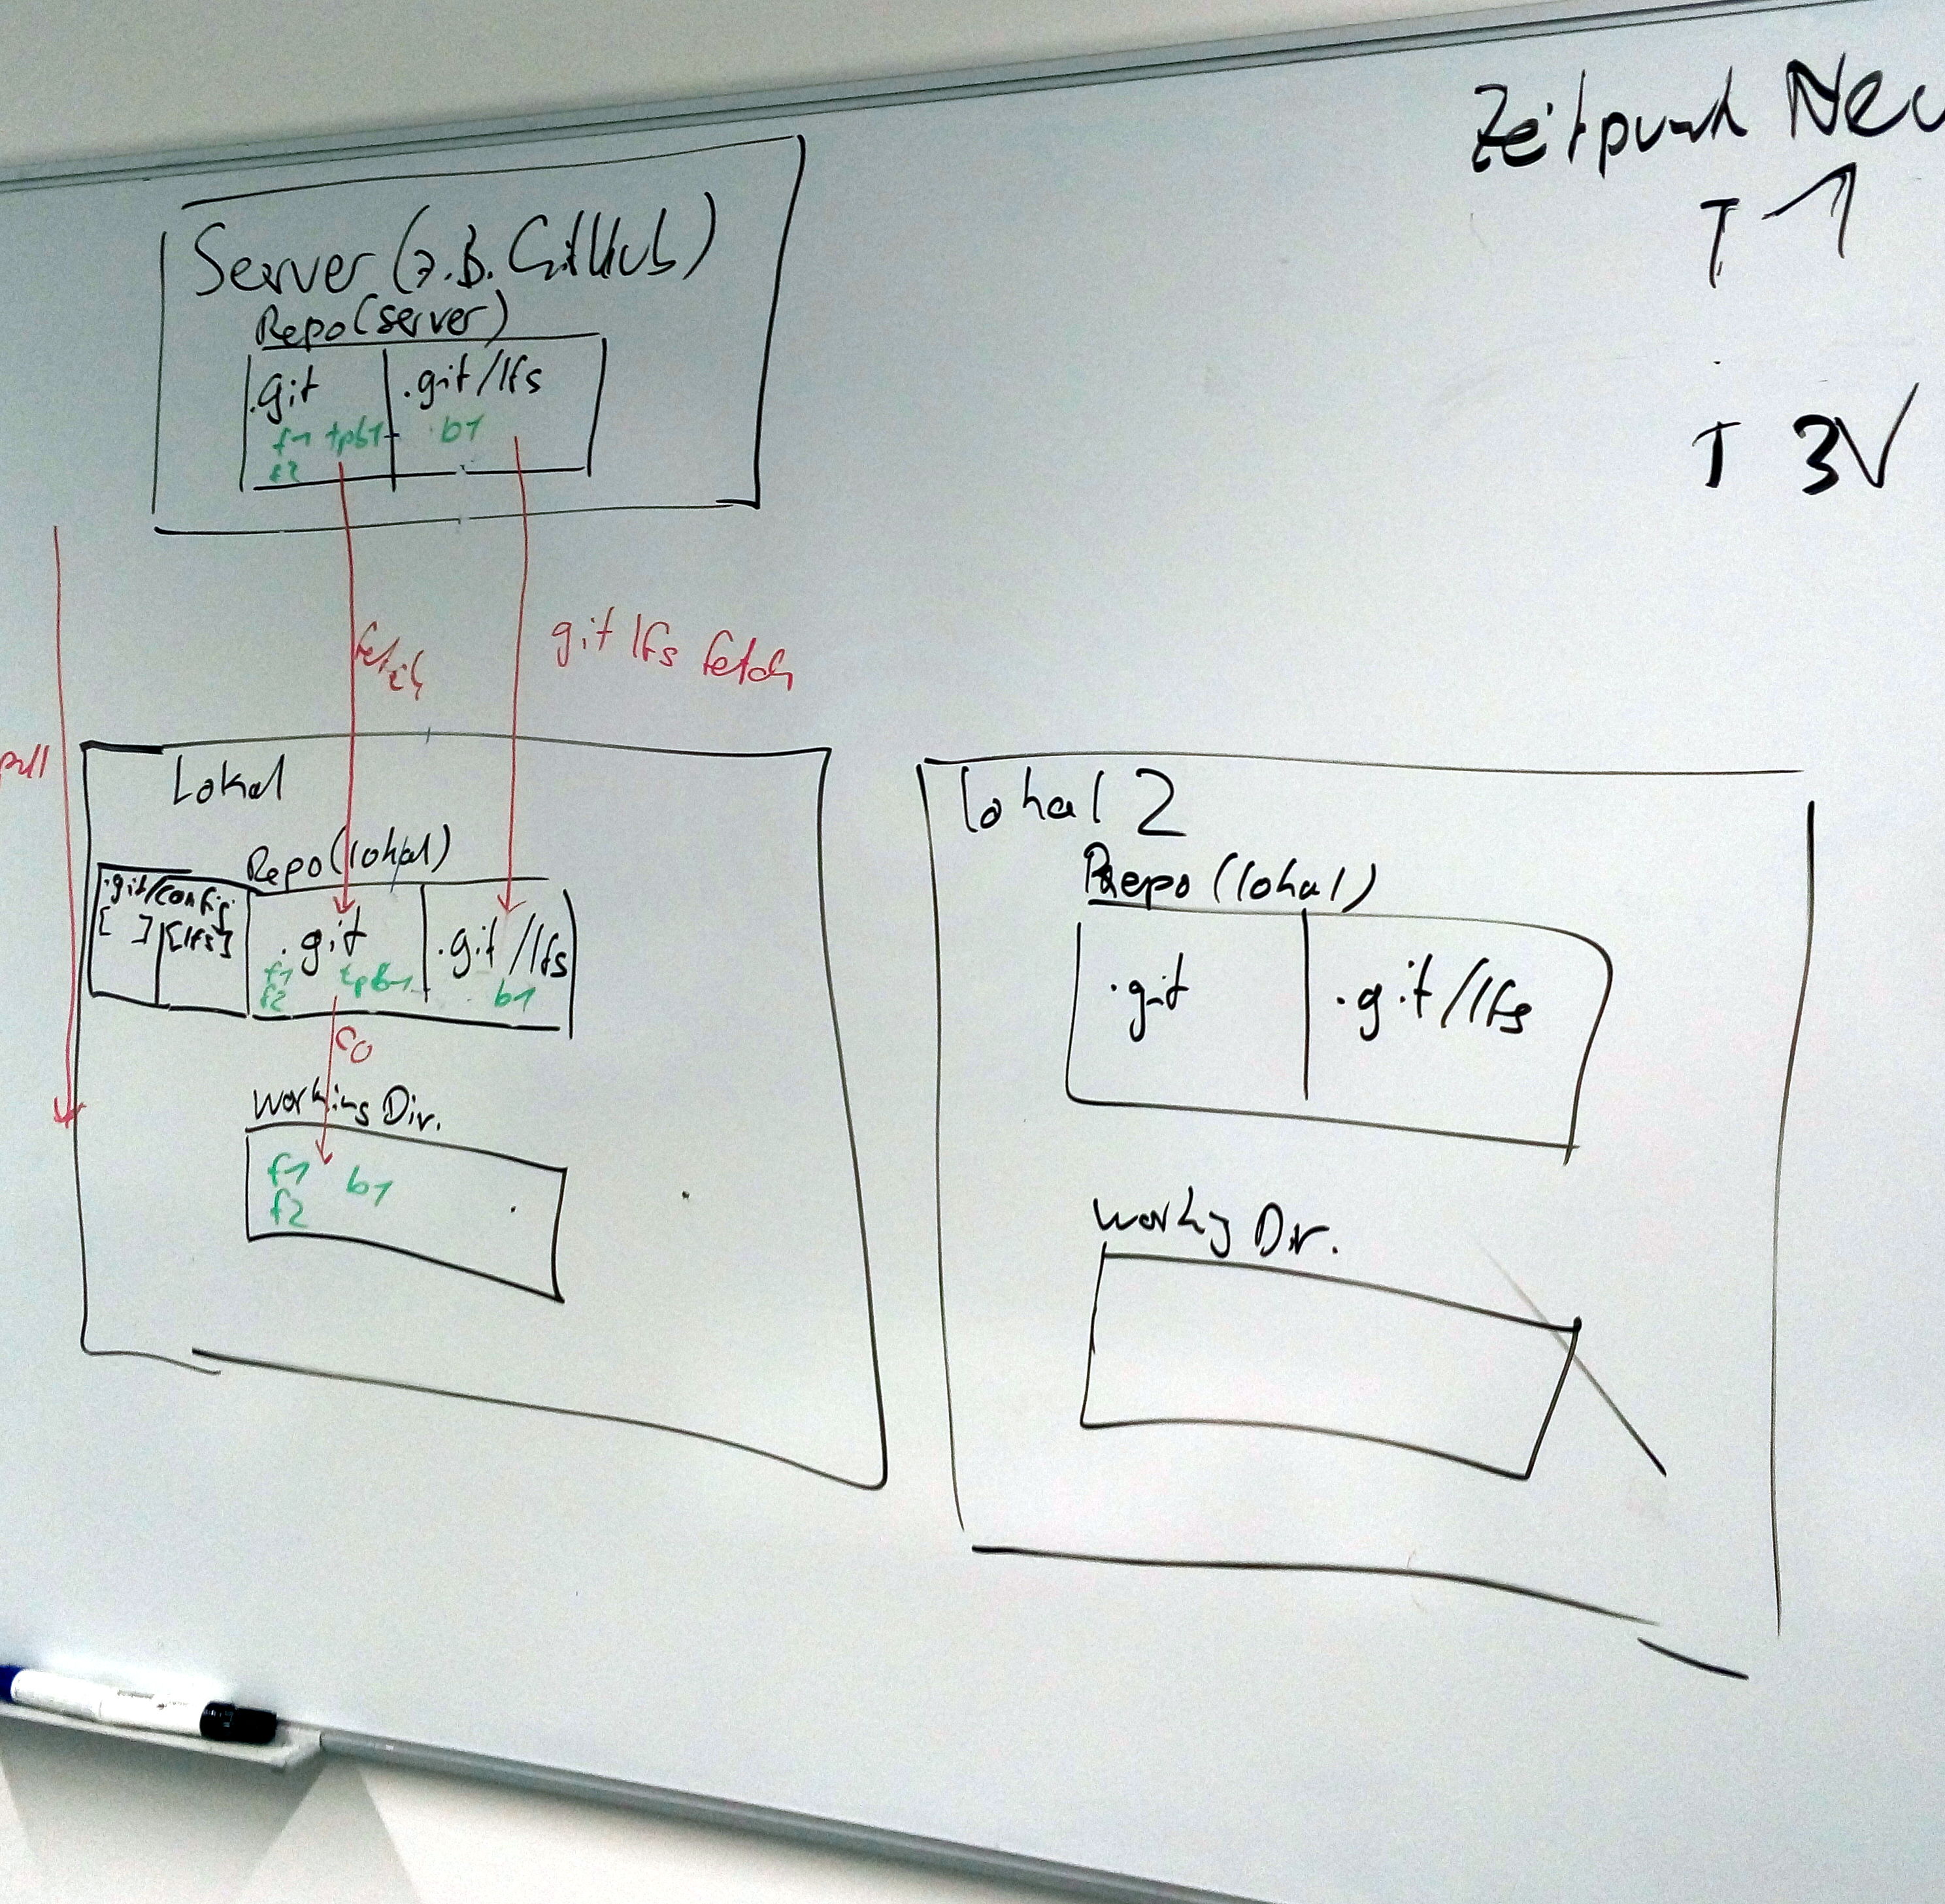 Zeitpunkt Neu
T 1
T 3
Server (z.B. GitHub)
Repo (server)
.git .git/lfs
f1 tpb1 b1
f2
fetch git lfs fetch
pull
Lokal
Repo (lokal)
.git/config
[ ] [lfs]
.git .git/lfs
f1 tpb1 b1
f2
co
Working Dir.
f1 b1
f2
lokal 2
Repo (lokal)
.git .git/lfs
Working Dir.